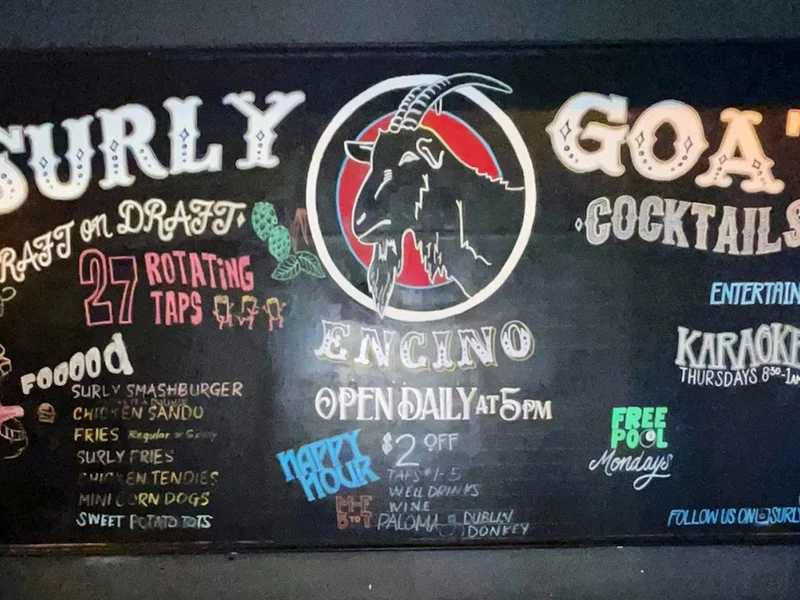 SURLY
GOAT
RAFT on DRAFT
COCKTAILS
27 ROTATING
TAPS
ENTERTAIN
ENCINO
KARAOKE
THURSDAYS 8:30-1AM
FOOOOD
SURLY SMASHBURGER
CHICKEN SANDO
FRIES Regular or
SURLY FRIES
CHICKEN TENDIES
MINI CORN DOGS
SWEET POTATO TOTS
OPEN DAILY AT 5PM
HAPPY
HOUR
M-F
5 TO 7
$2 OFF
TAPS #1-5
WELL DRINKS
WINE
PALOMA
DUBLIN
DONKEY
FREE
POOL
Mondays
FOLLOW US ON SURLY